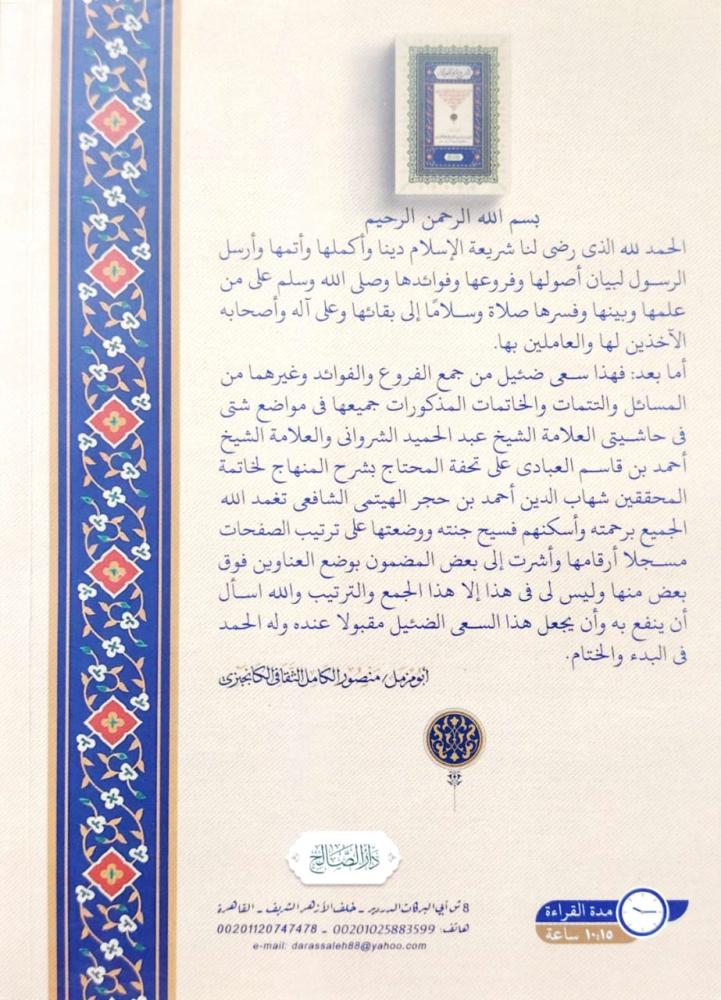 بسم الله الرحمن الرحيم
الحمد لله الذى رضى لنا شريعة الإسلام دينا وأكملها وأتمها وأرسل
الرسول لبيان أصولها وفروعها وفوائدها وصلى الله وسلم على من
علمها وبينها وفسرها صلاة وسلامًا إلى بقائها وعلى آله وأصحابه
الآخذين لها والعاملين بها.
أما بعد: فهذا سعى ضئيل من جمع الفروع والفوائد وغيرهما من
المسائل والتتمات والخاتمات المذكورات جميعها فى مواضع شتى
فى حاشيتى العلامة الشيخ عبد الحميد الشروانى والعلامة الشيخ
أحمد بن قاسم العبادى على تحفة المحتاج بشرح المنهاج لخاتمة
المحققين شهاب الدين أحمد بن حجر الهيتمى الشافعى تغمد الله
الجميع برحمته وأسكنهم فسيح جنته ووضعتها على ترتيب الصفحات
مسجلا أرقامها وأشرت إلى بعض المضمون بوضع العناوين فوق
بعض منها وليس لى فى هذا إلا هذا الجمع والترتيب والله اسأل
أن ينفع به وأن يجعل هذا السعى الضئيل مقبولا عنده وله الحمد
فى البدء والختام.
أبو مزمل/ منصور الكامل الثقافى الكانجيزى
دار الصالح
8 ش أبي البركات الدردير - خلف الأزهر الشريف - القاهرة
هاتف: 00201025883599 - 00201120747478
e-mail: darassaleh88@yahoo.com
مدة القراءة
١٠:١٥ ساعة